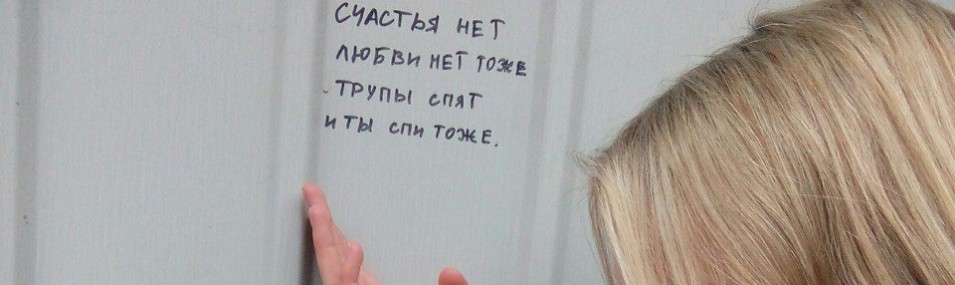 СЧАСТЬЯ НЕТ
ЛЮБВИ НЕТ ТОЖЕ
ТРУПЫ СПЯТ
И ТЫ СПИ ТОЖЕ.